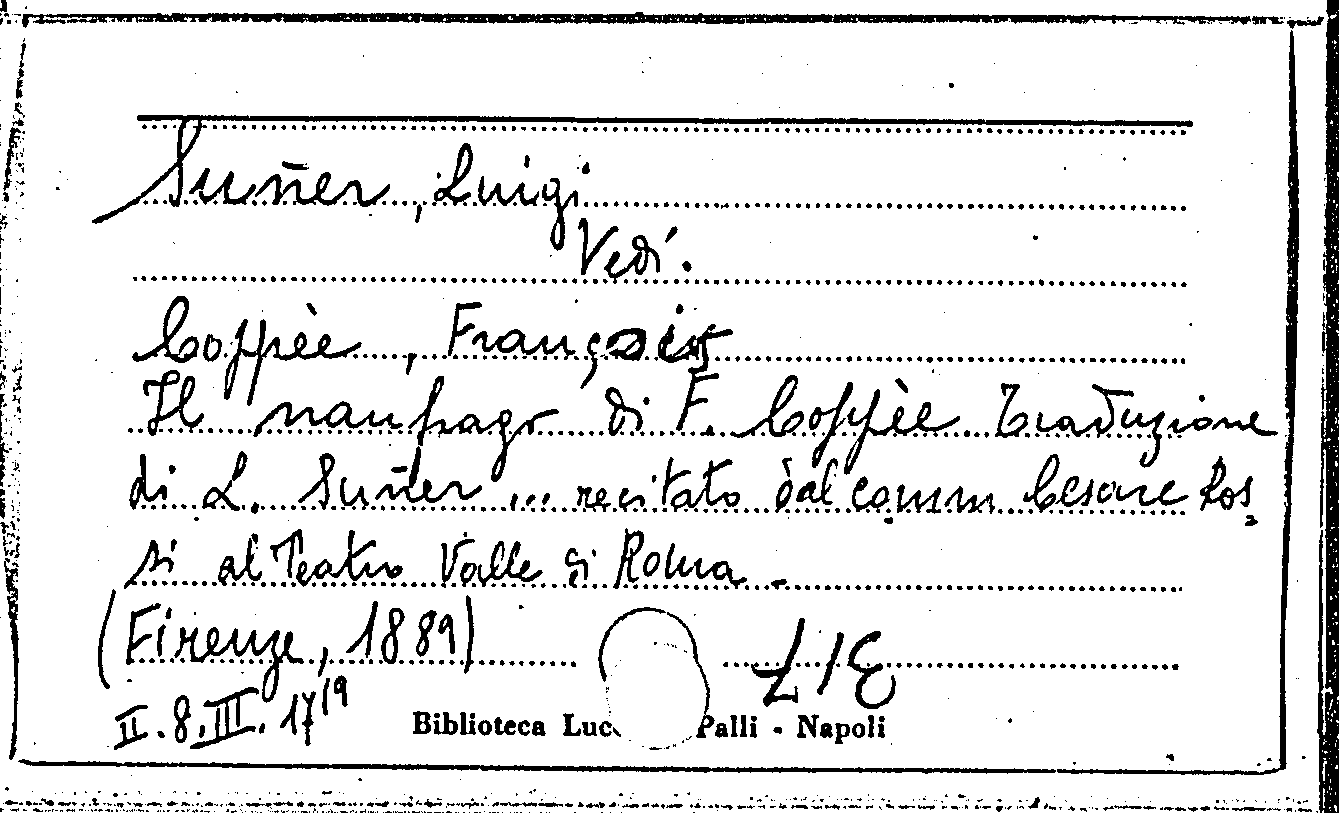 Suñer, Luigi
Vedi.
Coppèe, François
Il naufrago di F. Coppèe Traduzione
di L. Suñer ... recitato dal comm Cesare Ros=
si al Teatro Valle di Roma.
(Firenze, 1889)
II. 8. III. 17/9
L/E
Biblioteca Luc Palli - Napoli